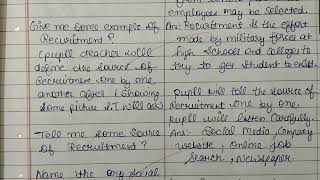 Give me some example of
Recruitment?
(pupil teacher will
define the source of
Recruitment one by one
another after (showing
some picture & I will ask)
Tell me some source
of Recruitment?
Name the any social
employees may be selected.
An:- Recruitment is the effort
made by military forces at
high schools and colleges to
try to get student to exist.
Pupil will tell the source of
Recruitment one by one.
Pupil will listen carefully.
Ans:- Social Media, Company
website, Online Job
Search, Newspaper.